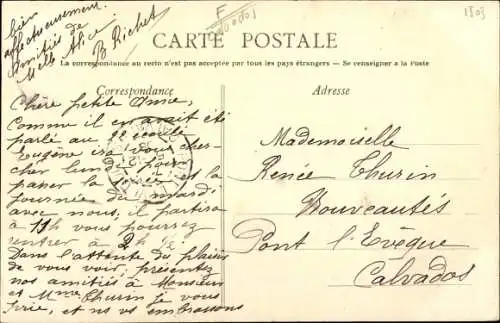 bien
affectueusement
Amitiés de
Melle Alice.
B Richet
F
Calvados
1503
CARTE POSTALE
La correspondance au recto n'est pas acceptée par tous les pays étrangers. — Se renseigner à la Poste
Correspondance
Adresse
Chère petite Amie,
Comme il en avait été
parlé au
Eugène ira vous cher-
cher lundi pour
passer la soirée et la
journée du mardi
avec nous, il partira
à 11h vous pourrez
rentrer à 2h 1/2
Dans l'attente du plaisir
de vous voir, présentez
nos amitiés à Monsieur
et Mme Thurin je vous
prie, et ns vs embrassons
Mademoiselle
Renée Thurin
Nouveautés
Pont l'Evêque
Calvados